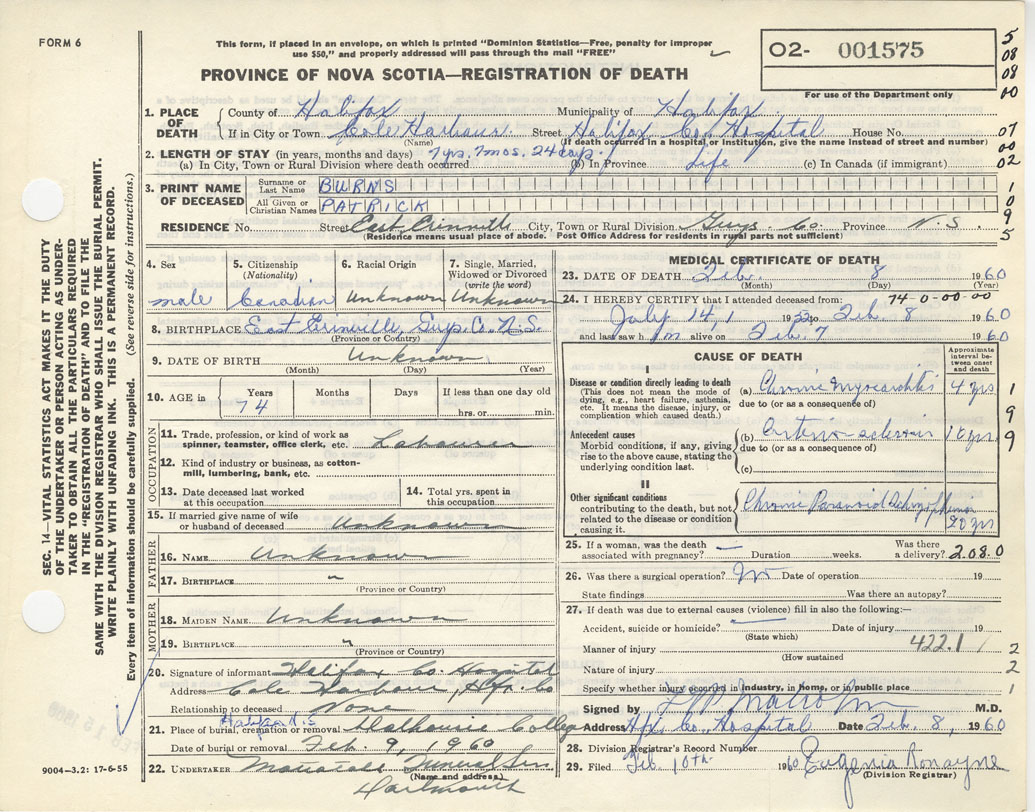 FORM 6
This form, if placed in an envelope, on which is printed "Dominion Statistics—Free, penalty for improper
use $50," and properly addressed will pass through the mail "FREE"
O2- 001575
For use of the Department only
PROVINCE OF NOVA SCOTIA—REGISTRATION OF DEATH
5
08
08
00
07
00
02
1
0
9
5
1. PLACE OF DEATH
County of Halifax Municipality of Halifax
If in City or Town Cole Harbour. Street Halifax Co. Hospital House No.
(Name) (If death occurred in a hospital or Institution, give the name instead of street and number)
2. LENGTH OF STAY (in years, months and days) 7 yrs. 7 mos. 24 days.
(a) In City, Town or Rural Division where death occurred (b) In Province Life (c) In Canada (if immigrant)
3. PRINT NAME OF DECEASED
Surname or Last Name BURNS
All Given or Christian Names PATRICK
RESIDENCE No. Street East Erinville City, Town or Rural Division Guys. Co. Province N.S.
(Residence means usual place of abode. Post Office Address for residents in rural parts not sufficient)
4. Sex male
5. Citizenship (Nationality) Canadian
6. Racial Origin Unknown
7. Single, Married, Widowed or Divorced (write the word) Unknown
8. BIRTHPLACE East Erinville, Guys. Co. N.S.
(Province or Country)
9. DATE OF BIRTH Unknown
(Month) (Day) (Year)
10. AGE in Years Months Days If less than one day
74 hrs. or min.
OCCUPATION
11. Trade, profession, or kind of work as spinner, teamster, office clerk, etc. Labourer
12. Kind of industry or business, as cotton-mill, lumbering, bank, etc.
13. Date deceased last worked at this occupation
14. Total yrs. spent in this occupation
15. If married give name of wife or husband of deceased Unknown
FATHER
16. NAME Unknown
17. BIRTHPLACE "
(Province or Country)
MOTHER
18. MAIDEN NAME Unknown
19. BIRTHPLACE "
(Province or Country)
20. Signature of informant Halifax Co. Hospital
Address Cole Harbour, Hfx. Co
Relationship to deceased None
Halifax N.S
21. Place of burial, cremation or removal Dalhousie College
Date of burial or removal Feb. 9, 1960
22. UNDERTAKER Funeral
(Name and address)
Dartmouth
9004—3.2: 17-6-55
MEDICAL CERTIFICATE OF DEATH
23. DATE OF DEATH Feb. 8 1960
(Month) (Day) (Year)
74-0-00-00
24. I HEREBY CERTIFY that I attended deceased from:
July 14, 19 to Feb. 8 1960
and last saw him alive on Feb. 7 1960
CAUSE OF DEATH
Approximate interval between onset and death
I
Disease or condition directly leading to death
(This does not mean the mode of dying, e.g., heart failure, asthenia, etc. It means the disease, injury, or complication which caused death.)
(a) Chronic Myocarditis 4 yrs
due to (or as a consequence of)
Antecedent causes
Morbid conditions, if any, giving rise to the above cause, stating the underlying condition last.
(b) Arterio sclerosis 10 yrs
due to (or as a consequence of)
(c)
1
9
9
II
Other significant conditions
contributing to the death, but not related to the disease or condition causing it.
Chronic Paranoid Schizophrenia
20 yrs
25. If a woman, was the death associated with pregnancy? — Duration weeks. Was there a delivery? 208.0
26. Was there a surgical operation? No Date of operation 19
State findings Was there an autopsy?
27. If death was due to external causes (violence) fill in also the following:—
Accident, suicide or homicide? — Date of injury 19
(State which)
422.1
Manner of injury
(How sustained)
Nature of injury
Specify whether injury occurred in industry, in home, or in public place
1
2
2
1
Signed by M.D.
Address Hfx. Co. Hospital Date Feb. 8, 1960
28. Division Registrar's Record Number
29. Filed Feb. 10th 1960 Eugenia Ronayne
(Division Registrar)
SEC. 14—VITAL STATISTICS ACT MAKES IT THE DUTY
OF THE UNDERTAKER OR PERSON ACTING AS UNDER-
TAKER TO OBTAIN ALL THE PARTICULARS REQUIRED
IN THE "REGISTRATION OF DEATH" AND FILE THE
SAME WITH THE DIVISION REGISTRAR WHO SHALL ISSUE THE BURIAL PERMIT.
WRITE PLAINLY WITH UNFADING INK. THIS IS A PERMANENT RECORD.
Every item of information should be carefully supplied. (See reverse side for instructions.)